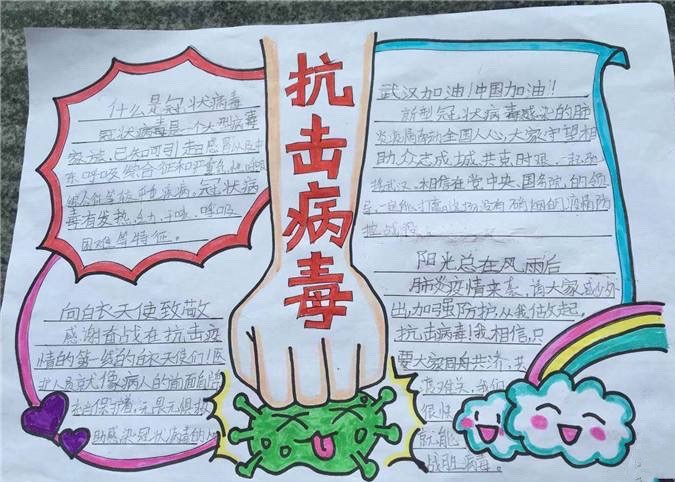 抗击病毒
什么是冠状病毒
冠状病毒是一个大型病毒
家族,已知可引起感冒以及中
东呼吸综合征和严重急性呼吸
冠状病
毒有发热、乏力、干咳、呼吸
困难等特征。
向白衣天使致敬
感谢奋战在抗击疫
情的第一线的白衣天使们!医
护人员就像病人的前面
保护着,无畏无惧
感染冠状病毒的
武汉加油!中国加油!!
新型冠状病毒感染的肺
炎疫情牵动全国人心,大家守望相
助、众志成城、共克时艰,
武汉。相信在党中央、国务院的领
导,一定能打赢这场没有硝烟的疫情防
控战役。
阳光总在风雨后
肺炎疫情来袭,请大家减少外
出,加强防护,从我做起。
抗击病毒!我相信,只
要大家同舟共济、共
度难关,我们
很快
就能
战胜病毒。